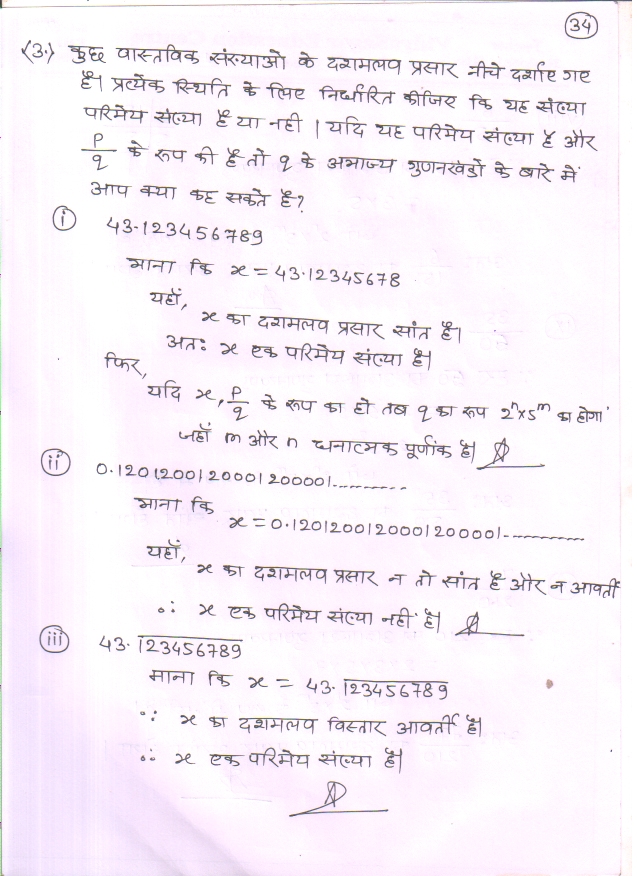 34
(3.) कुछ वास्तविक संख्याओं के दशमलव प्रसार नीचे दर्शाए गए
है। प्रत्येक स्थिति के लिए निर्धारित कीजिए कि यह संख्या
परिमेय संख्या है या नही । यदि यह परिमेय संख्या है और
p/q के रूप की है तो q के अभाज्य गुणनखंडो के बारे में
आप क्या कह सकते है?
(i) 43.123456789
माना कि x = 43.12345678
यहाँ,
x का दशमलव प्रसार सांत है।
अतः x एक परिमेय संख्या है।
फिर,
यदि x, p/q के रूप का हो तब q का रूप 2ⁿ×5ᵐ का होगा
जहाँ m और n धनात्मक पूर्णांक है।
(ii) 0.120120012000120000 1.........
माना कि
x = 0.120120012000120000 1.........
यहाँ,
x का दशमलव प्रसार न तो सांत है और न आवर्ती
∴ x एक परिमेय संख्या नहीं है।
(iii) 43.1̅2̅3̅4̅5̅6̅7̅8̅9̅
माना कि x = 43.1̅2̅3̅4̅5̅6̅7̅8̅9̅
∵ x का दशमलव विस्तार आवर्ती है।
∴ x एक परिमेय संख्या है।